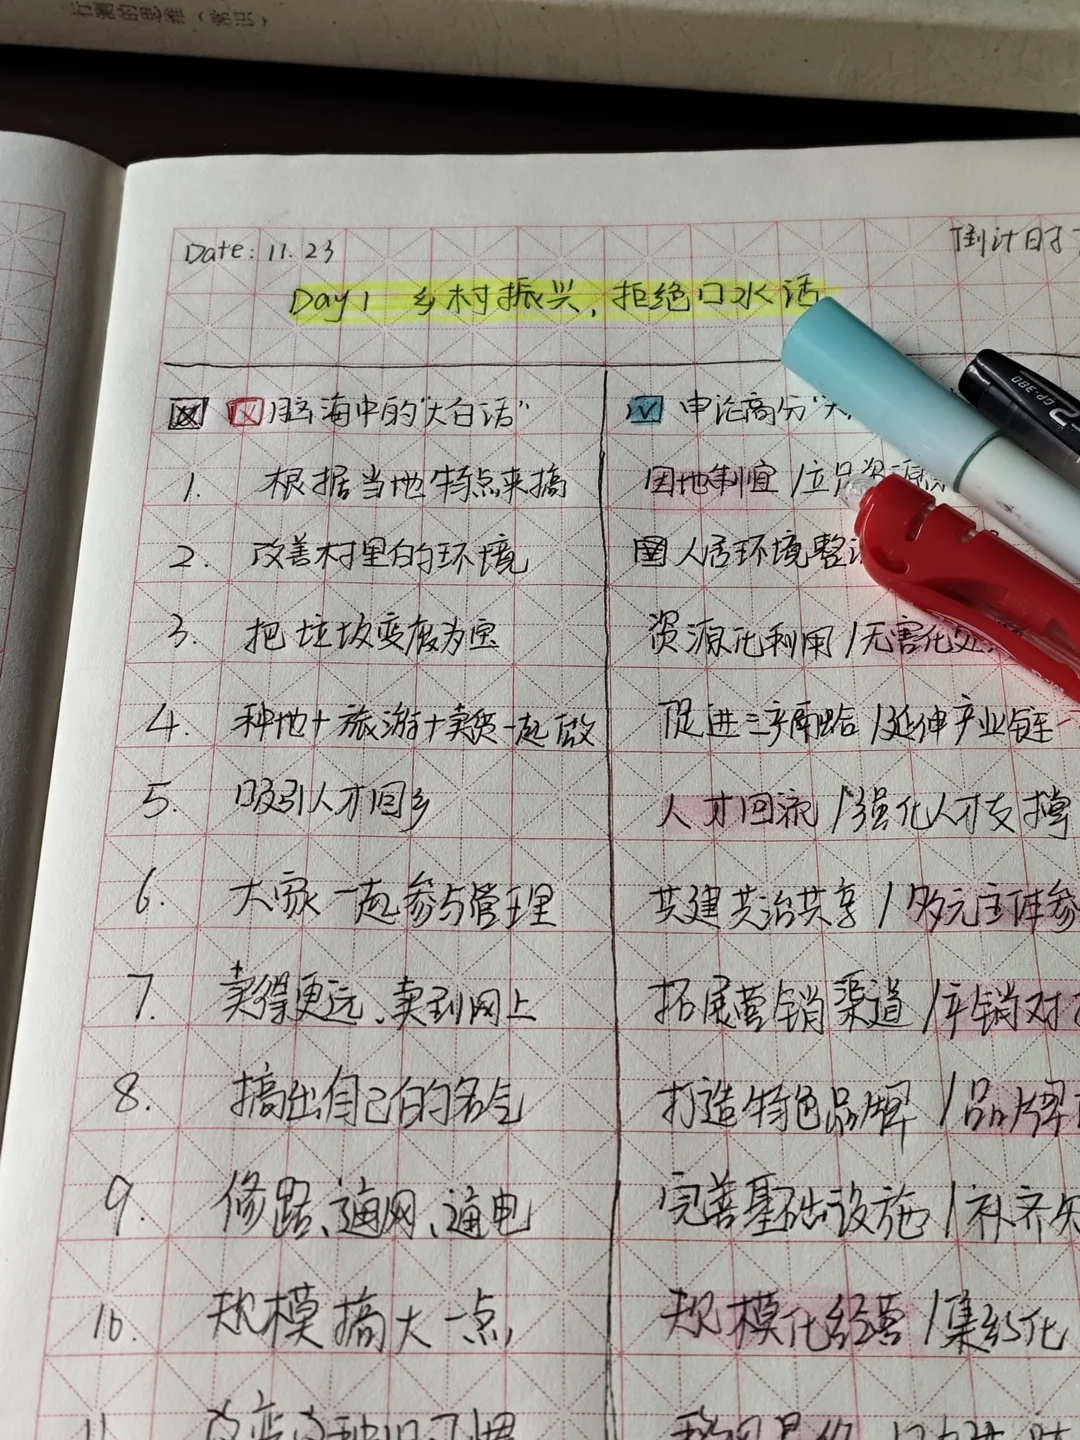 行测的思维（常识）
Date: 11.23 倒计时
Day1 乡村振兴，拒绝口水话
脑海中的"大白话" 申论高分"
1. 根据当地特点来搞 因地制宜/立足资源
2. 改善村里的环境 人居环境整治
3. 把垃圾变废为宝 资源化利用/无害化处
4. 种地+旅游+卖货一起做 促进三产融合/延伸产业链
5. 吸引人才回乡 人才回流/强化人才支撑
6. 大家一起参与管理 共建共治共享/多元主体参
7. 卖得更远、卖到网上 拓展营销渠道/产销对
8. 搞出自己的名气 打造特色品牌/品牌
9. 修路、通网、通电 完善基础设施/补齐
10. 规模搞大一点 规模化经营/集约化
11.
CP-380